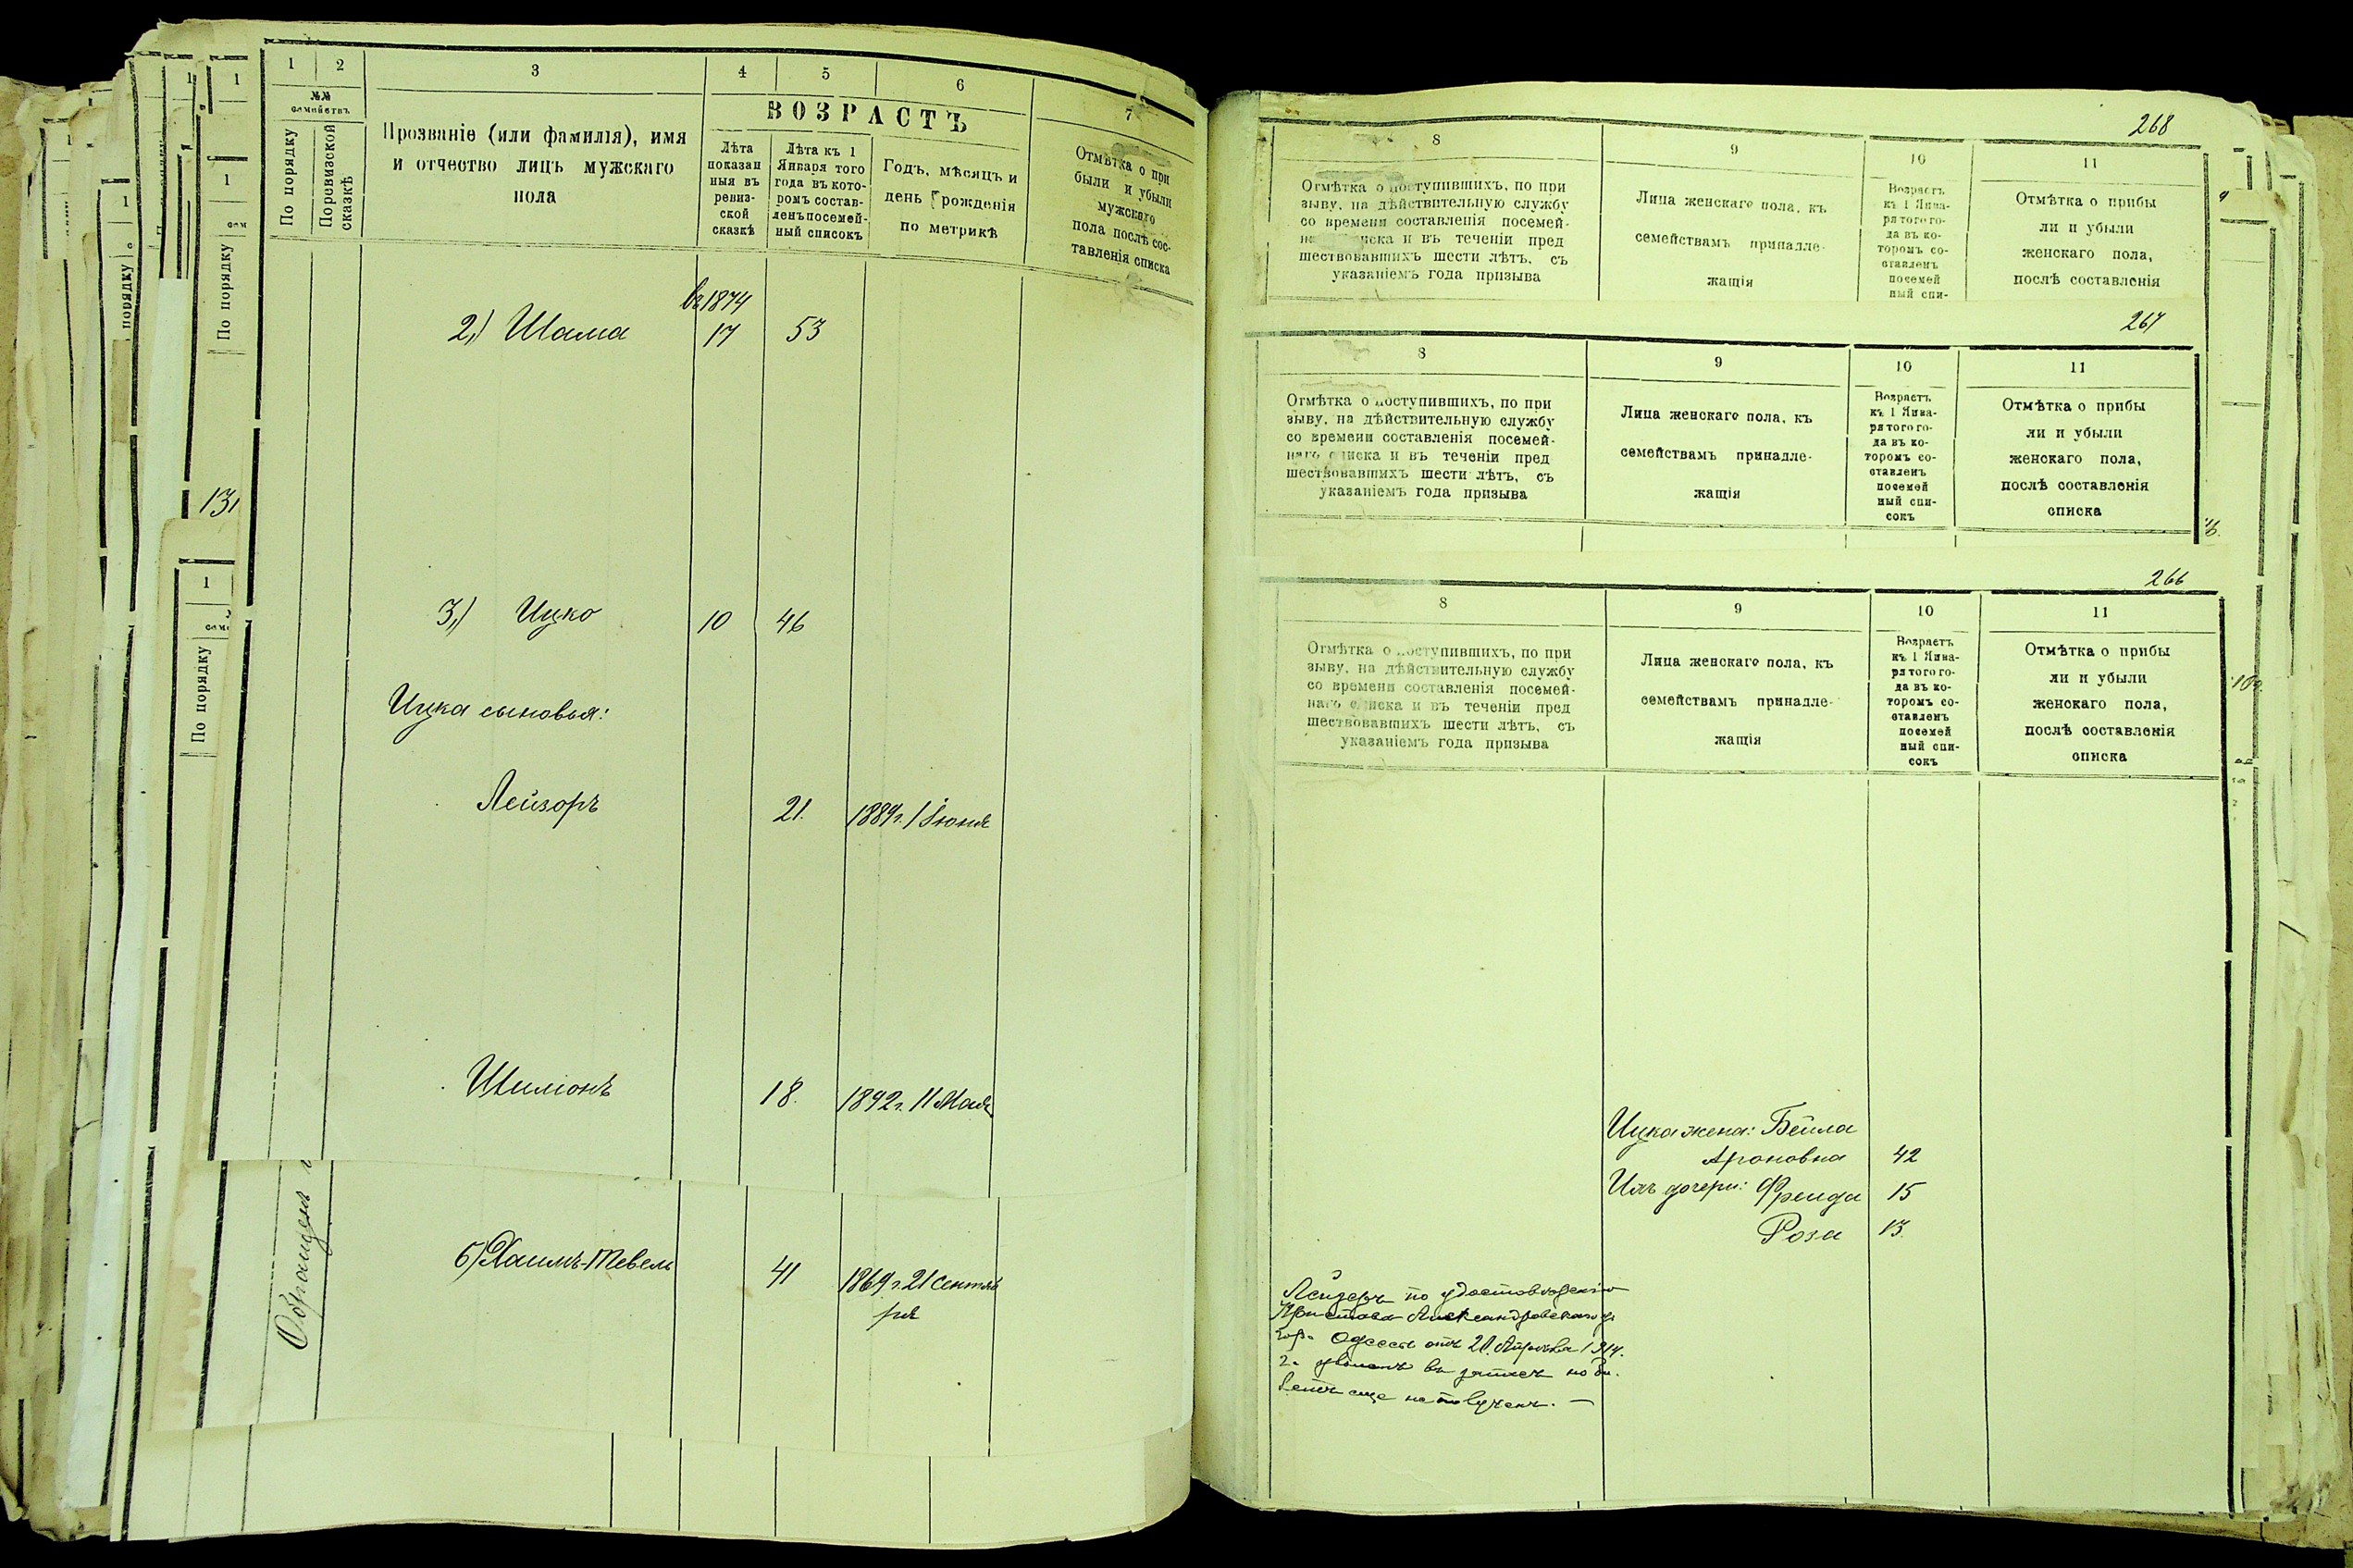 1 2 3 4 5 6 7
№№
семействъ
По порядку
По ревизской
сказкѣ
Прозваніе (или фамилія), имя
и отчество лицъ мужскаго
пола
ВОЗРАСТЪ
Лѣта
показан
ныя въ
ревиз-
ской
сказкѣ
Лѣта къ 1
Января того
года въ кото-
ромъ состав-
ленъ посемей-
ный списокъ
Годъ, мѣсяцъ и
день рожденія
по метрикѣ
Отмѣтка о при
были и убыли
мужского
пола послѣ сос-
тавленія списка
въ 1874
2,) Шама 17 53
3,) Ицко 10 46
Ицка сыновья:
Лейзоръ 21. 1889г. 1 Іюня
Шимонъ 18. 1892г. 11 Мая
Образцемъ
6) Хаимъ-Тевель 41 1869 г. 21 Сентяб
ря
1
По порядку
1
порядку
131
1
По порядку
268
8 9 10 11
Отмѣтка о поступившихъ, по при
зыву, на дѣйствительную службу
со времени составленія посемей-
списка и въ теченіи пред
шествовавшихъ шести лѣтъ, съ
указаніемъ года призыва
Лица женскаго пола, къ
семействамъ принадле-
жащія
Возрастъ
къ 1 Янва-
ря того го-
да въ ко-
торомъ со-
ставленъ
посемей
ный спи-
Отмѣтка о прибы
ли и убыли
женскаго пола,
послѣ составленія
267
8 9 10 11
Отмѣтка о поступившихъ, по при
зыву, на дѣйствительную службу
со времени составленія посемей-
наго списка и въ теченіи пред
шествовавшихъ шести лѣтъ, съ
указаніемъ года призыва
Лица женскаго пола, къ
семействамъ принадле-
жащія
Возрастъ
къ 1 Янва-
ря того го-
да въ ко-
торомъ со-
ставленъ
посемей
ный спи-
сокъ
Отмѣтка о прибы
ли и убыли
женскаго пола,
послѣ составленія
списка
266
8 9 10 11
Отмѣтка о поступившихъ, по при
зыву, на дѣйствительную службу
со времени составленія посемей-
наго списка и въ теченіи пред
шествовавшихъ шести лѣтъ, съ
указаніемъ года призыва
Лица женскаго пола, къ
семействамъ принадле-
жащія
Возрастъ
къ 1 Янва-
ря того го-
да въ ко-
торомъ со-
ставленъ
посемей
ный спи-
сокъ
Отмѣтка о прибы
ли и убыли
женскаго пола,
послѣ составленія
списка
Ицка жена: Бейла
Ароновна 42
Ихъ дочери: Фрейда 15
Роза 13.
Лейзеръ по удостовѣренію
Пристава Александровскаго у.
гор. Одессы отъ 20 Апрѣля 1914.
г. уволенъ въ запасъ но би.
летъ еще не полученъ. —